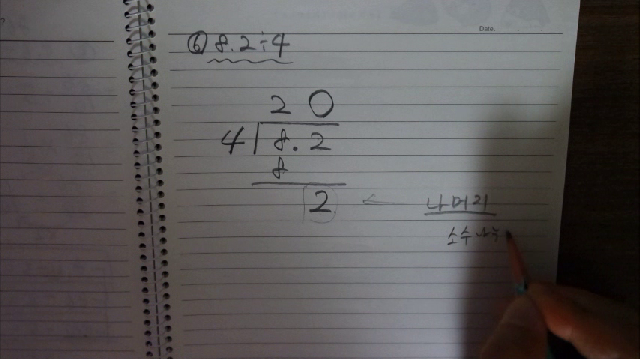 Date.
⑥ 8.2÷4
2 0
4 8.2
8
2
나머지
소수